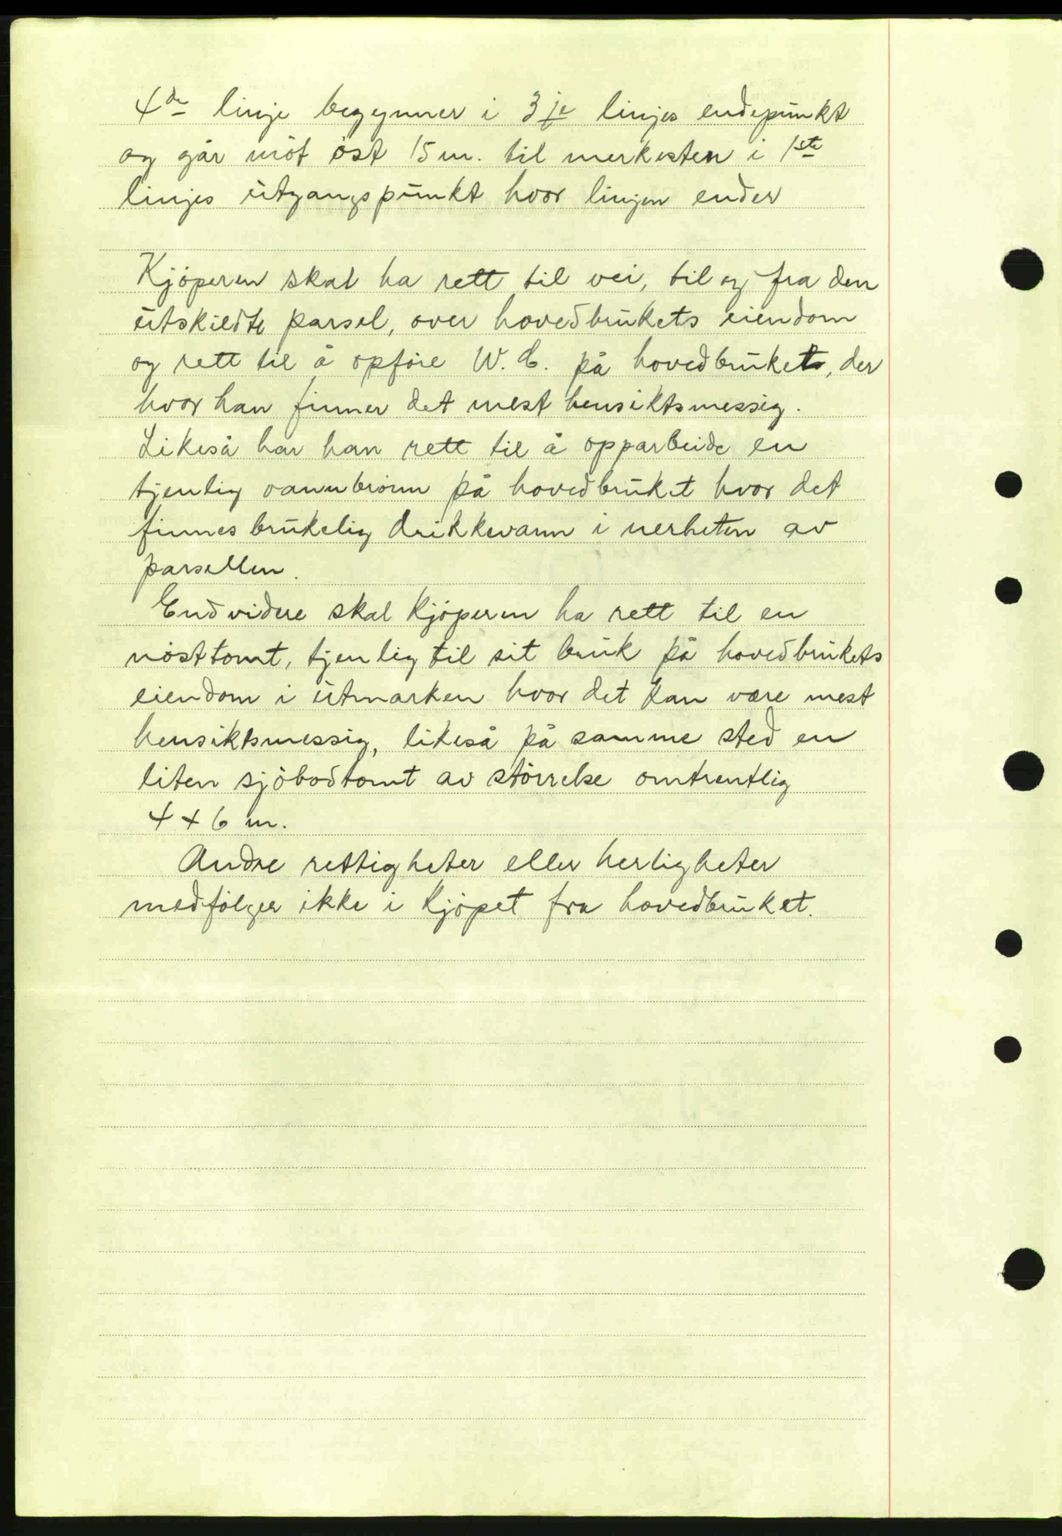 4de linje begynner i 3je linjes endepunkt
og går mot öst 15 m. til merkesten i 1ste
linjes utgangspunkt hvor linjen ender
Kjöperen skal ha rett til vei, til og fra den
utskildte parsel, over hovedbrukets eiendom
og rett til å opföre W. C. på hovedbruket, der
hvor han finner det mest hensiktsmessig.
Likeså har han rett til å opparbeide en
tjenlig vannbrönn på hovedbruket hvor det
finnes brukelig drikkevann i nerheten av
parsellen.
Endvidere skal kjöperen ha rett til en
nösttomt, tjenlig til sit bruk på hovedbrukets
eiendom i utmarken hvor det kan være mest
hensiktsmessig, likeså på samme sted en
liten sjöbodtomt av störrelse omtrentlig
4 + 6 m.
Andre rettigheter eller herligheter
medfölger ikke i kjöpet fra hovedbruket.